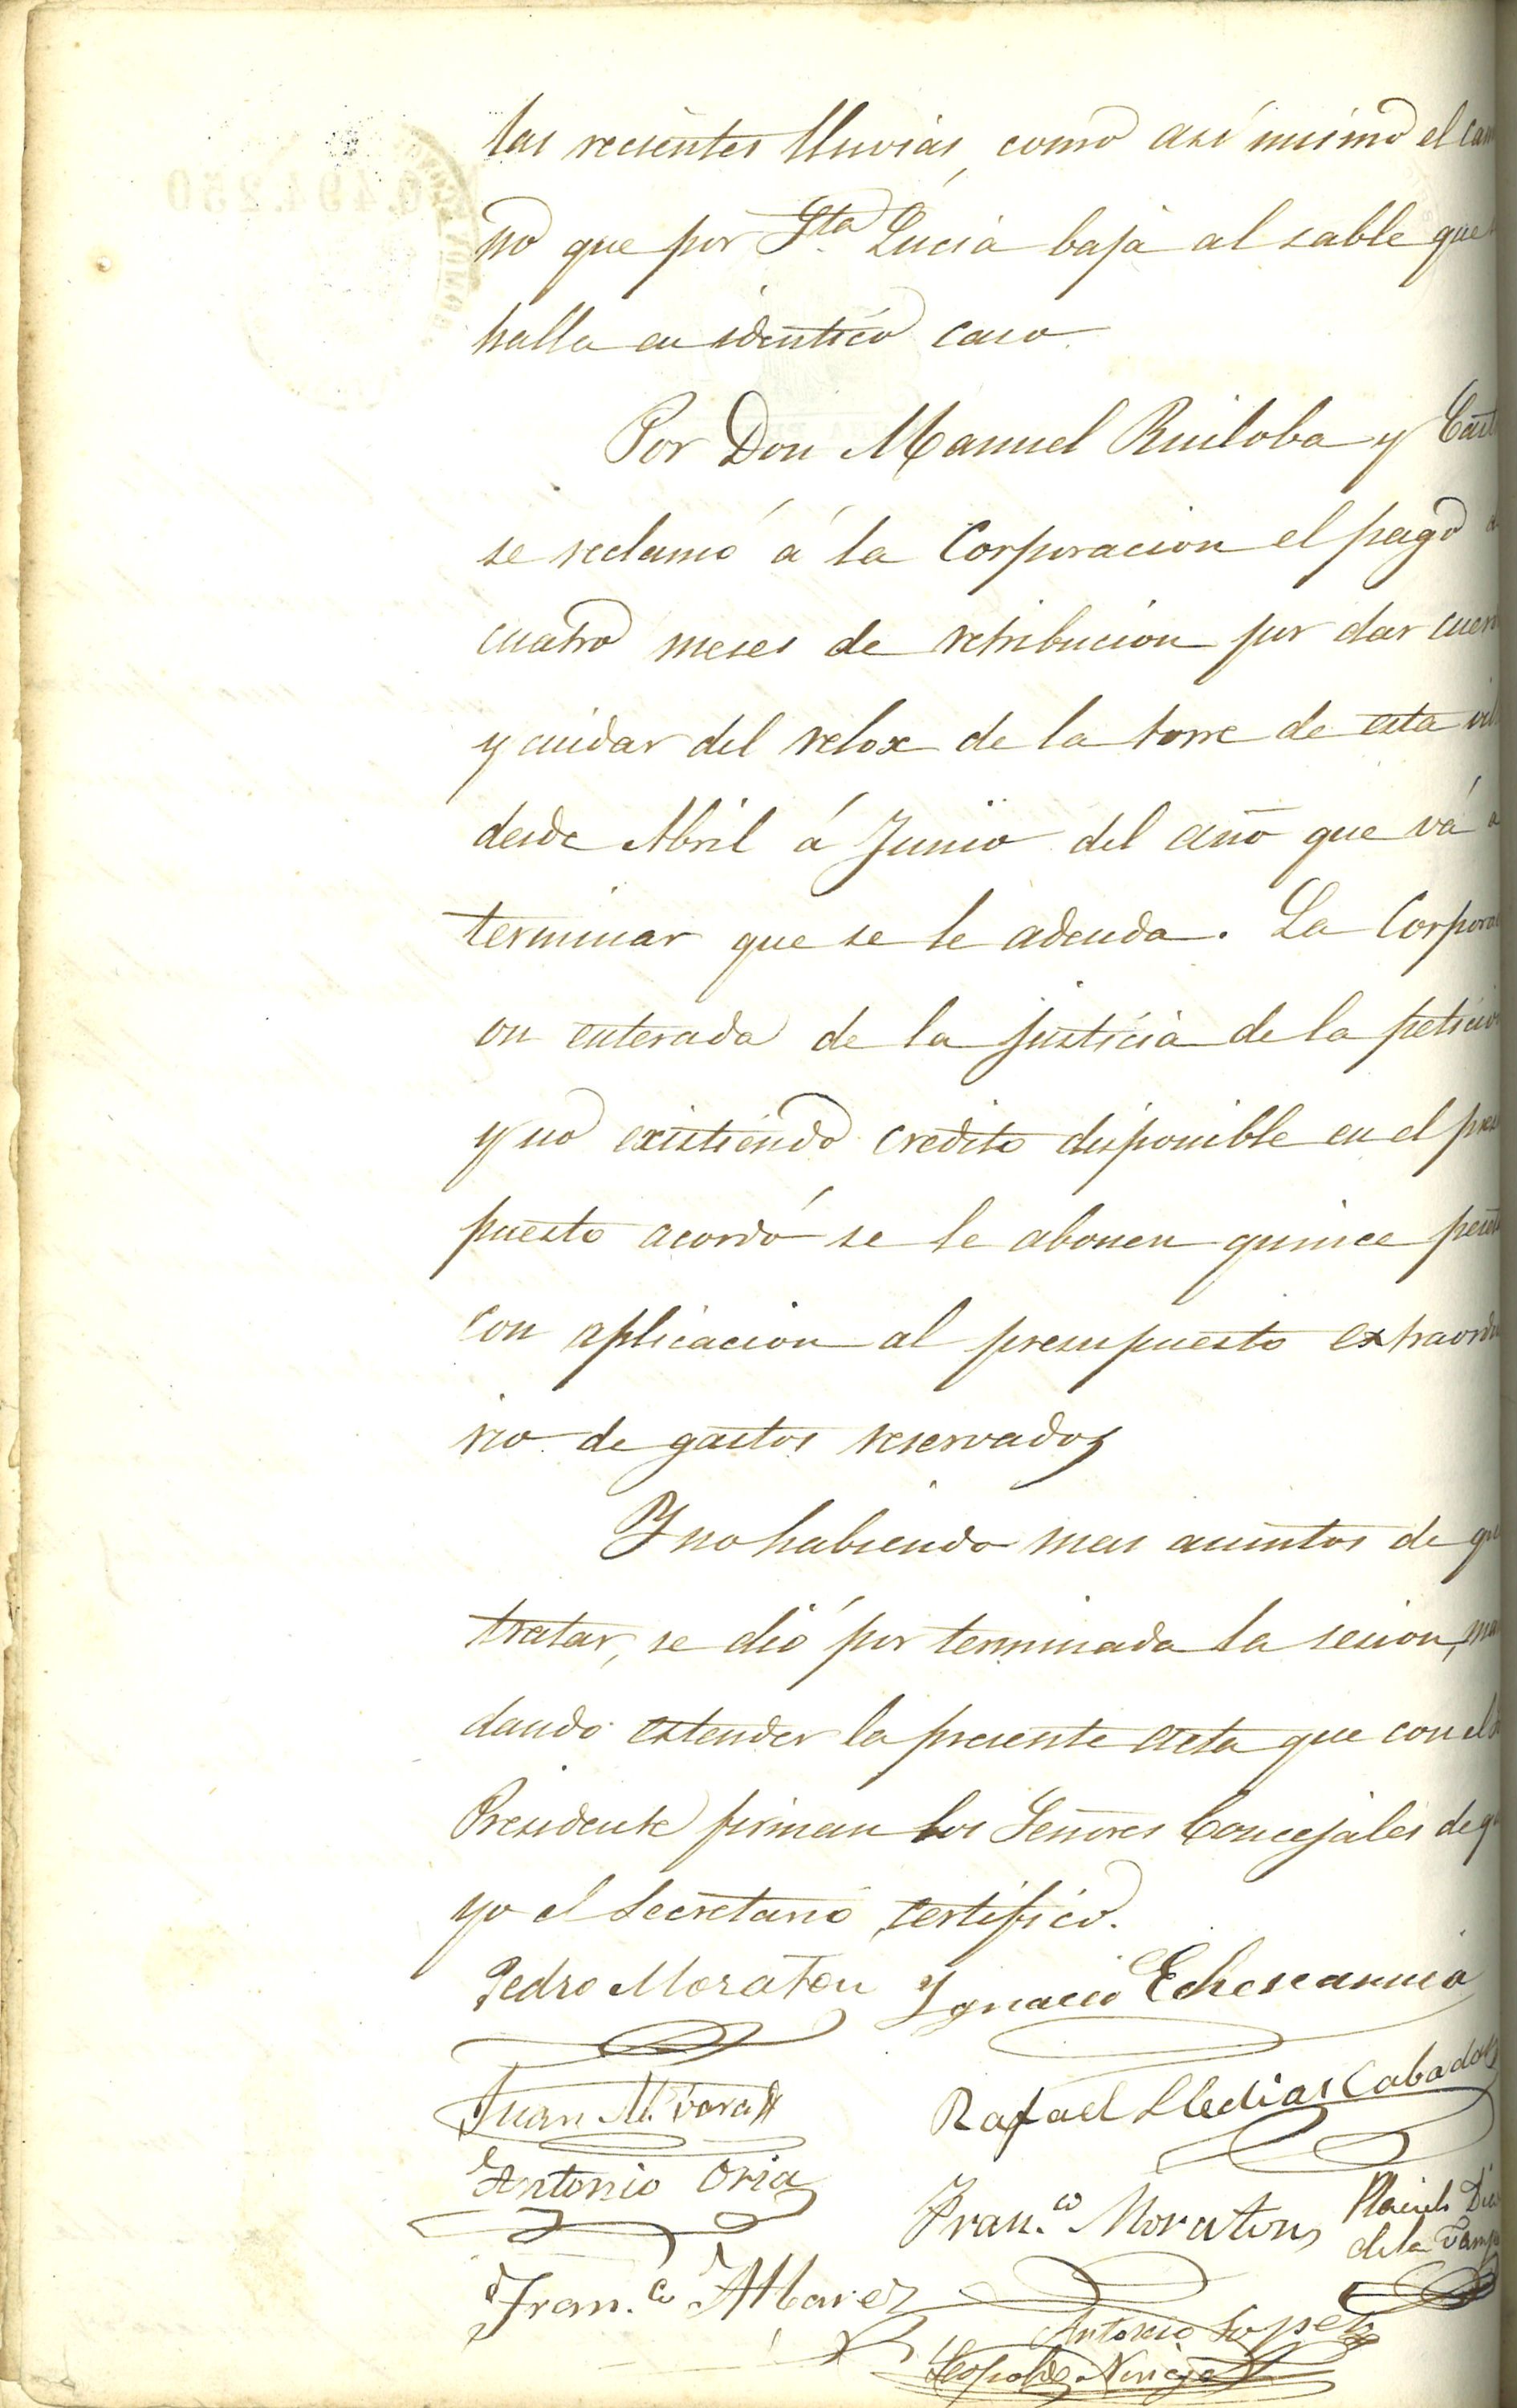 las recientes lluvias, como así mismo el cam
no que por Sta. Lucia baja al sable que
halla en identico caso.
Por Don Manuel Ruiloba y Cast
se reclamó á la Corporacion el pago
cuatro meses de retribucion por dar cuer
y cuidar del relox de la torre de esta vill
desde Abril á Junio del año que vá a
terminar que se le adeuda. La Corpora
on enterada de la justicia de la peticion
y no existiendo credito disponible en el presu
puesto acordó se le abonen quince peset
con aplicacion al presupuesto extraordi
rio de gastos reservados
Y no habiendo mas asuntos de que
tratar, se dió por terminada la sesion, man
dando estender la presente acta que con el
Presidente firman los Señores Concejales de q
yo el Secretario certifico.
Pedro Moraton Ygnacio Echevarria
Juan M. Vara
Rafael Lledias Cabado
Antonio Oria
Fran.co Moraton
de la
Fran.co Albarez
Antonio Lopez
Leopoldo
0.494.250